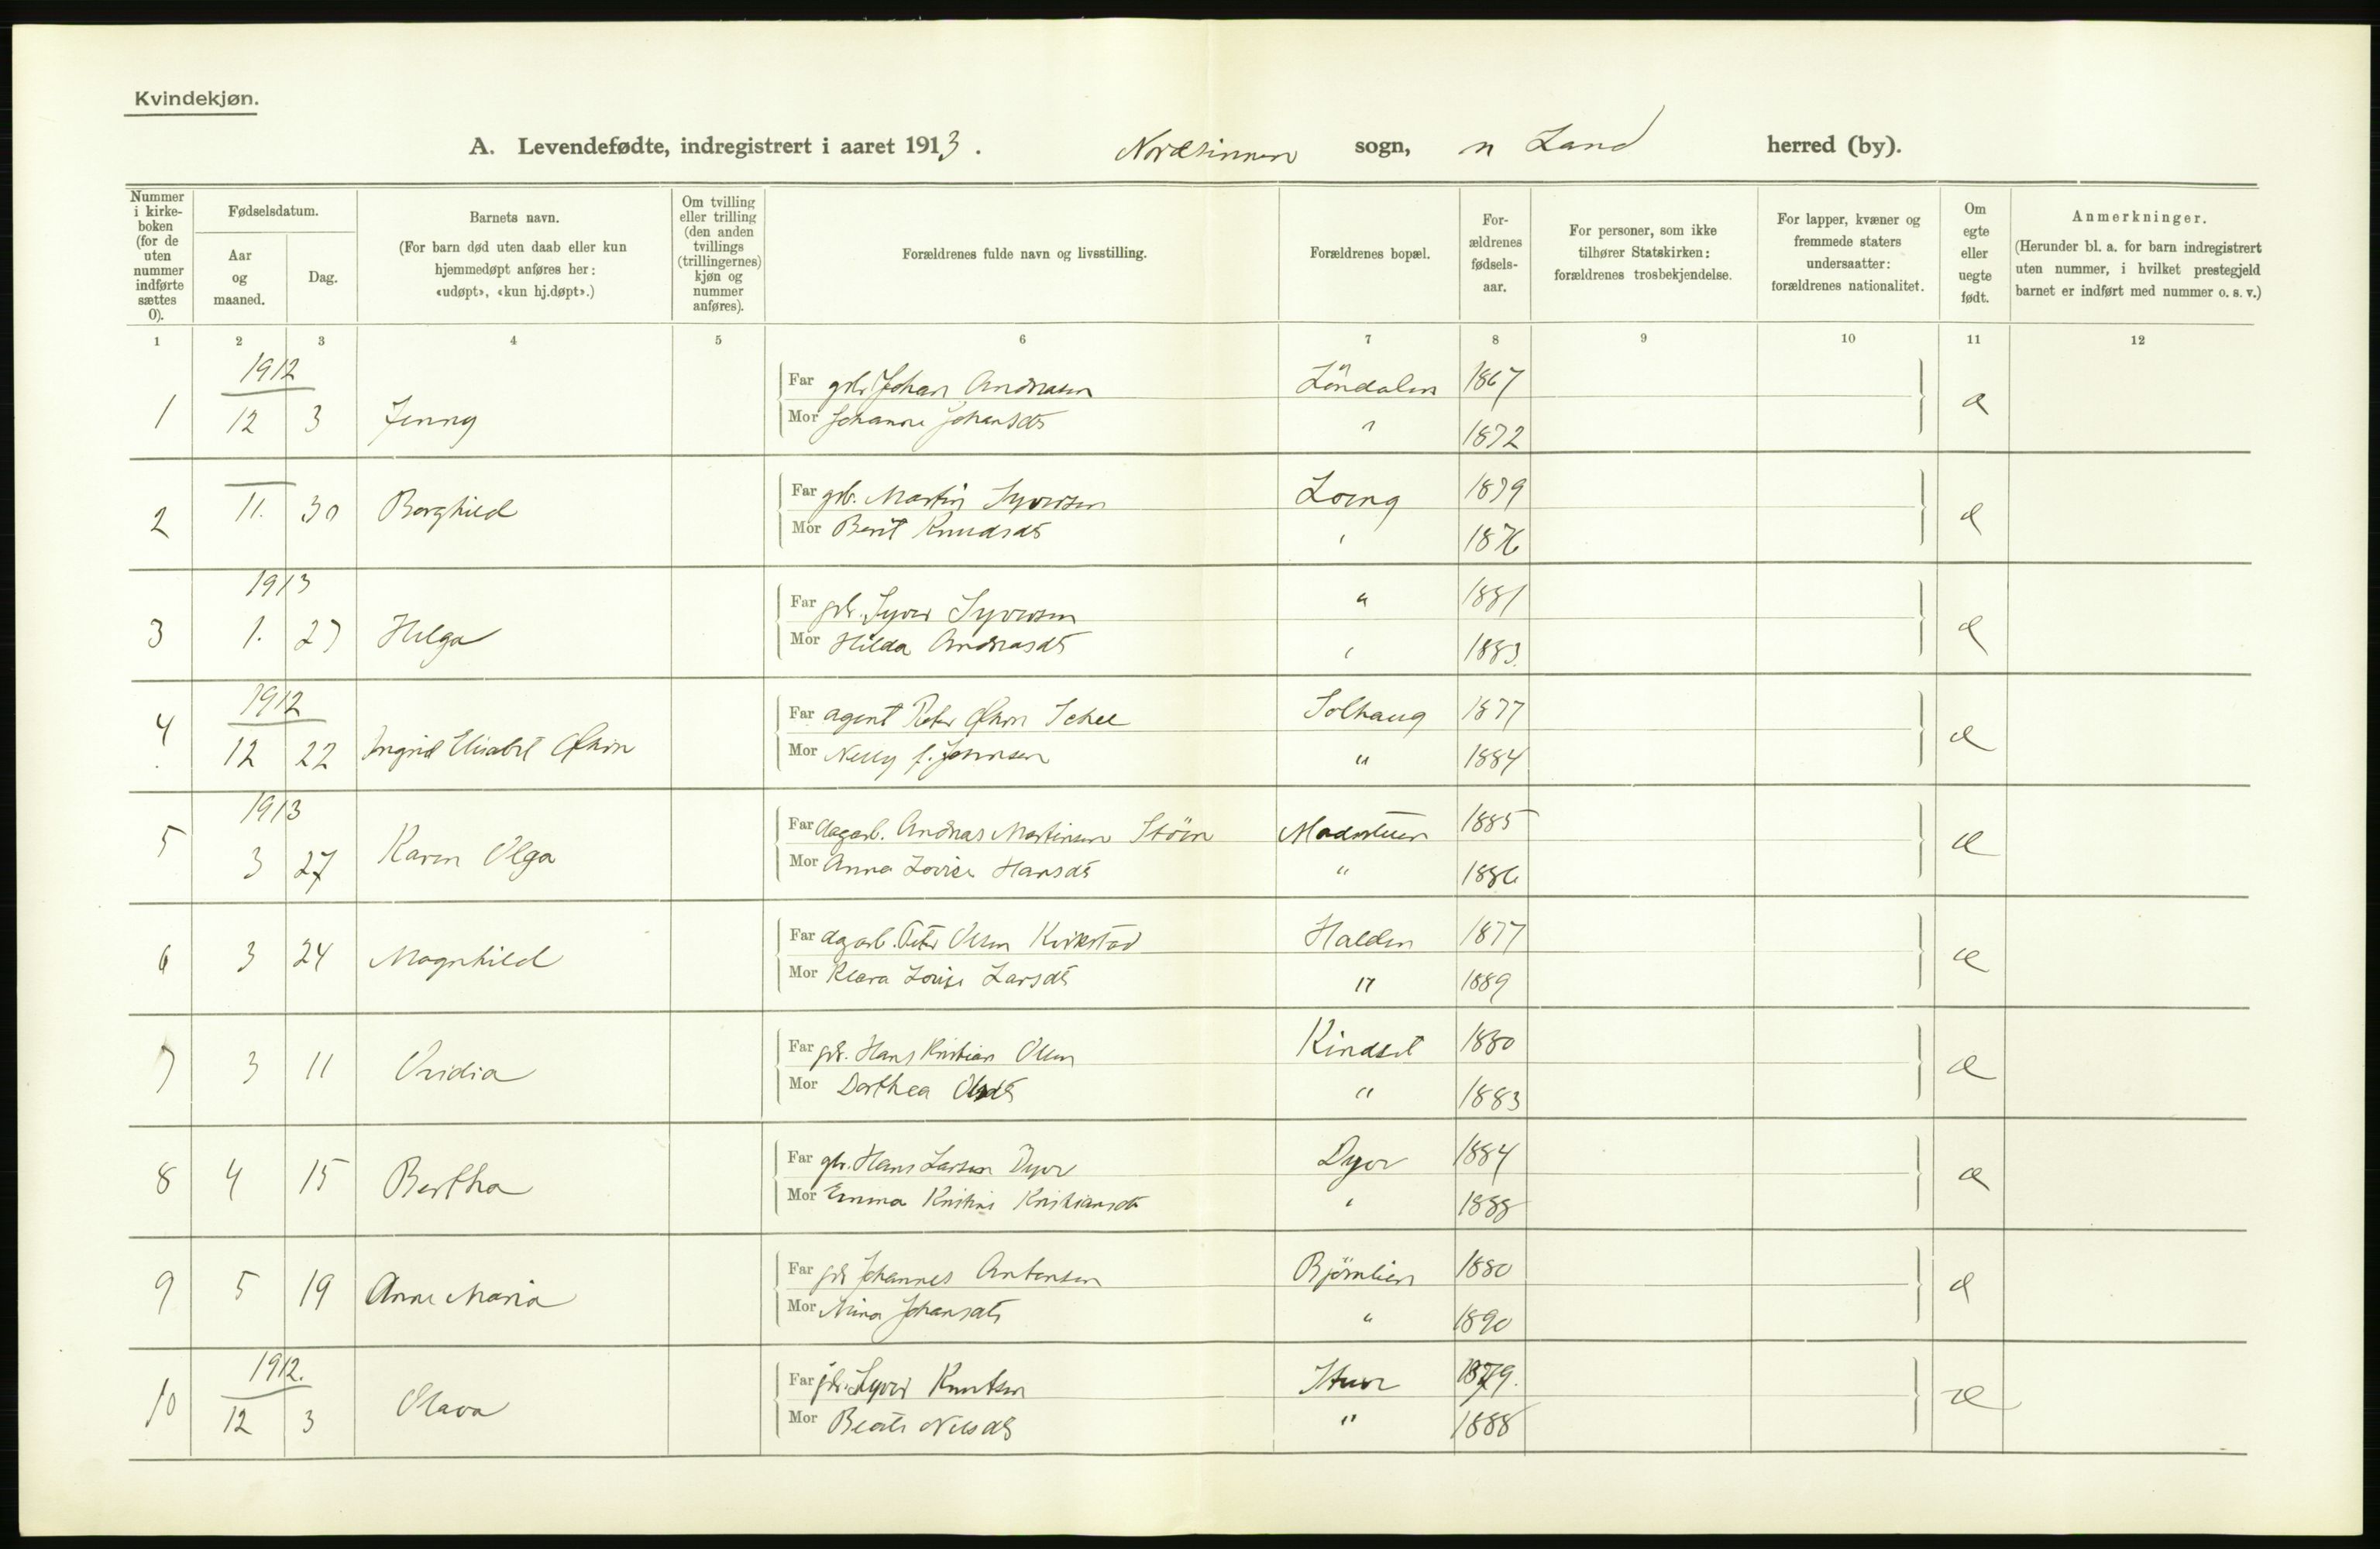 Kvindekjøn.
A. Levendefødte, indregistrert i aaret 1913. Nordsinnen sogn, n Land herred (by).
Nummer i kirkeboken (for de uten nummer indførte sættes 0).
Fødselsdatum.
Aar og maaned.
Dag.
Barnets navn.
(For barn død uten daab eller kun hjemmedøpt anføres her: «udøpt», «kun hj.døpt».)
Om tvilling eller trilling (den anden tvillings (trillingernes) kjøn og nummer anføres).
Forældrenes fulde navn og livsstilling.
Forældrenes bopæl.
Forældrenes fødselsaar.
For personer, som ikke tilhører Statskirken: forældrenes trosbekjendelse.
For lapper, kvæner og fremmede staters undersaatter: forældrenes nationalitet.
Om egte eller uegte født.
Anmerkninger.
(Herunder bl. a. for barn indregistrert uten nummer, i hvilket prestegjeld barnet er indført med nummer o. s. v.)
1 2 3 4 5 6 7 8 9 10 11 12
1912
1 12 3 Jenny
Far Johan Andreasen 1867
Mor Johanne Johansdt " 1872 e
2 11. 30 Borghild
Far gbr. Martin Syversen Loeng 1879
Mor Berit Knudsdt " 1876 e
1913
3 1. 27 Helga
Far gbr. Syver Syversen " 1881
Mor Hilda Andreasdt " 1883. e
1912
4 12 22 Ingrid Elisabet
Far agent Peter 1877
Mor Nelly f. Jonnsen " 1884 e
Solhaug
1913
5 3 27 Karen Olga
Far dagarb. Andreas Martinsen Støen 1885
Mor Anna Lovise Hansdt " 1886 e
6 3 24 Magnhild
Far dagarb. Peter Olsen Kvikstad Halden 1877
Mor Klara Lovise Larsdt " 1889 e
7 3 11 Ovidia
Far gbr. Hans Kristian Olsen Kindset 1880
Mor Dorthea Olsdt " 1883 e
8 4 15 Bertha
Far gbr. Hans Larsen Dyor Dyor 1884
Mor Emma Kristine Kristiansdt " 1888 e
9 5 19 Anne Maria
Far gbr Johannes Antonsen Bjørnlien 1880
Mor Mina Johansdt " 1890 e
1912.
10 12 3 Olava
Far gbr. Syver Knutsen 1879.
Mor Beate Nilsdt " 1888 e